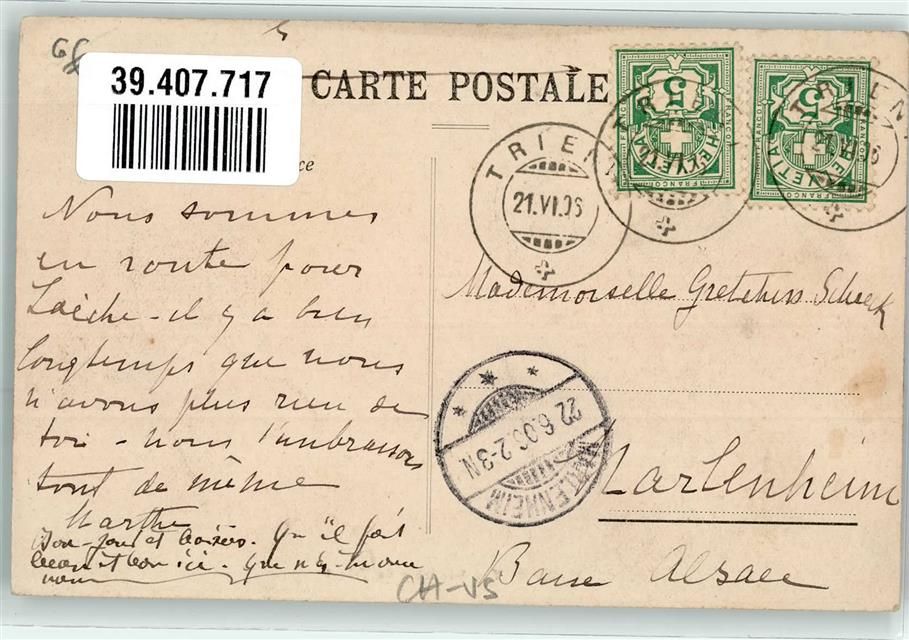 39.407.717
CARTE POSTALE
ce
TRIEN
21.VI.06
5
5
FRANCO
FRANCO
HELVETIA
Nous sommes
en route pour
Loèche - il y a bien
longtemps que nous
n'avons plus rien de
toi - nous t'embrassons
tout de même
Marthe
Bonjour et baisers. Qu'il fait
bon ici. que
Mademoiselle Gretchen Scheck
MARLENHEIM
22.6.06.2-3N
Marlenheim
Basse Alsace
CH-VS